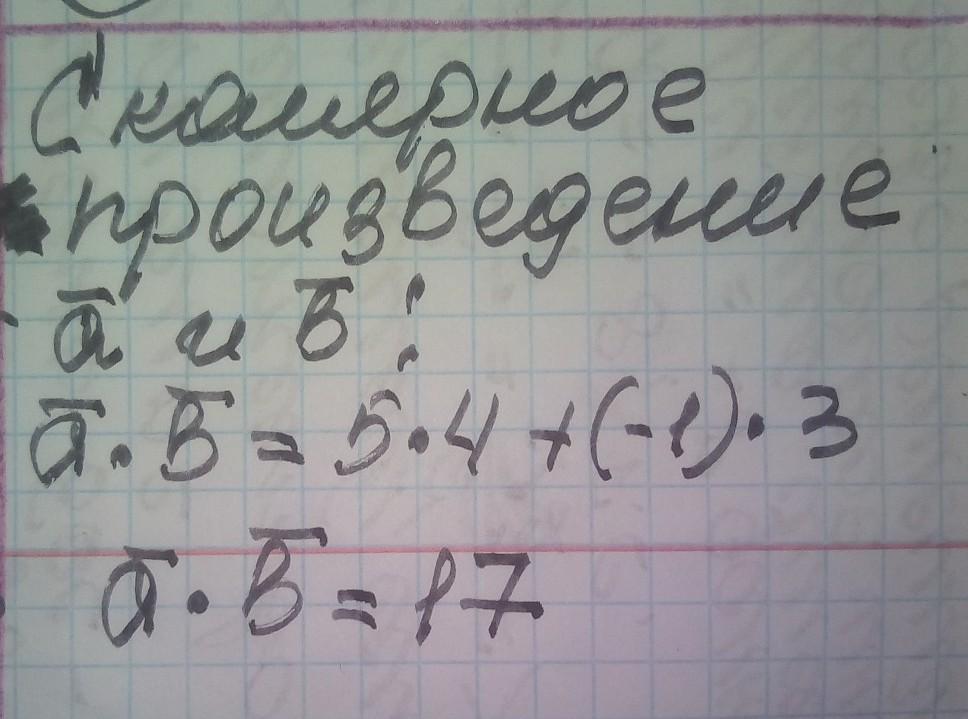 Скалярное
произведение
a̅ и b̅ :
a̅ · b̅ = 5 · 4 + (-1) · 3
a̅ · b̅ = 17